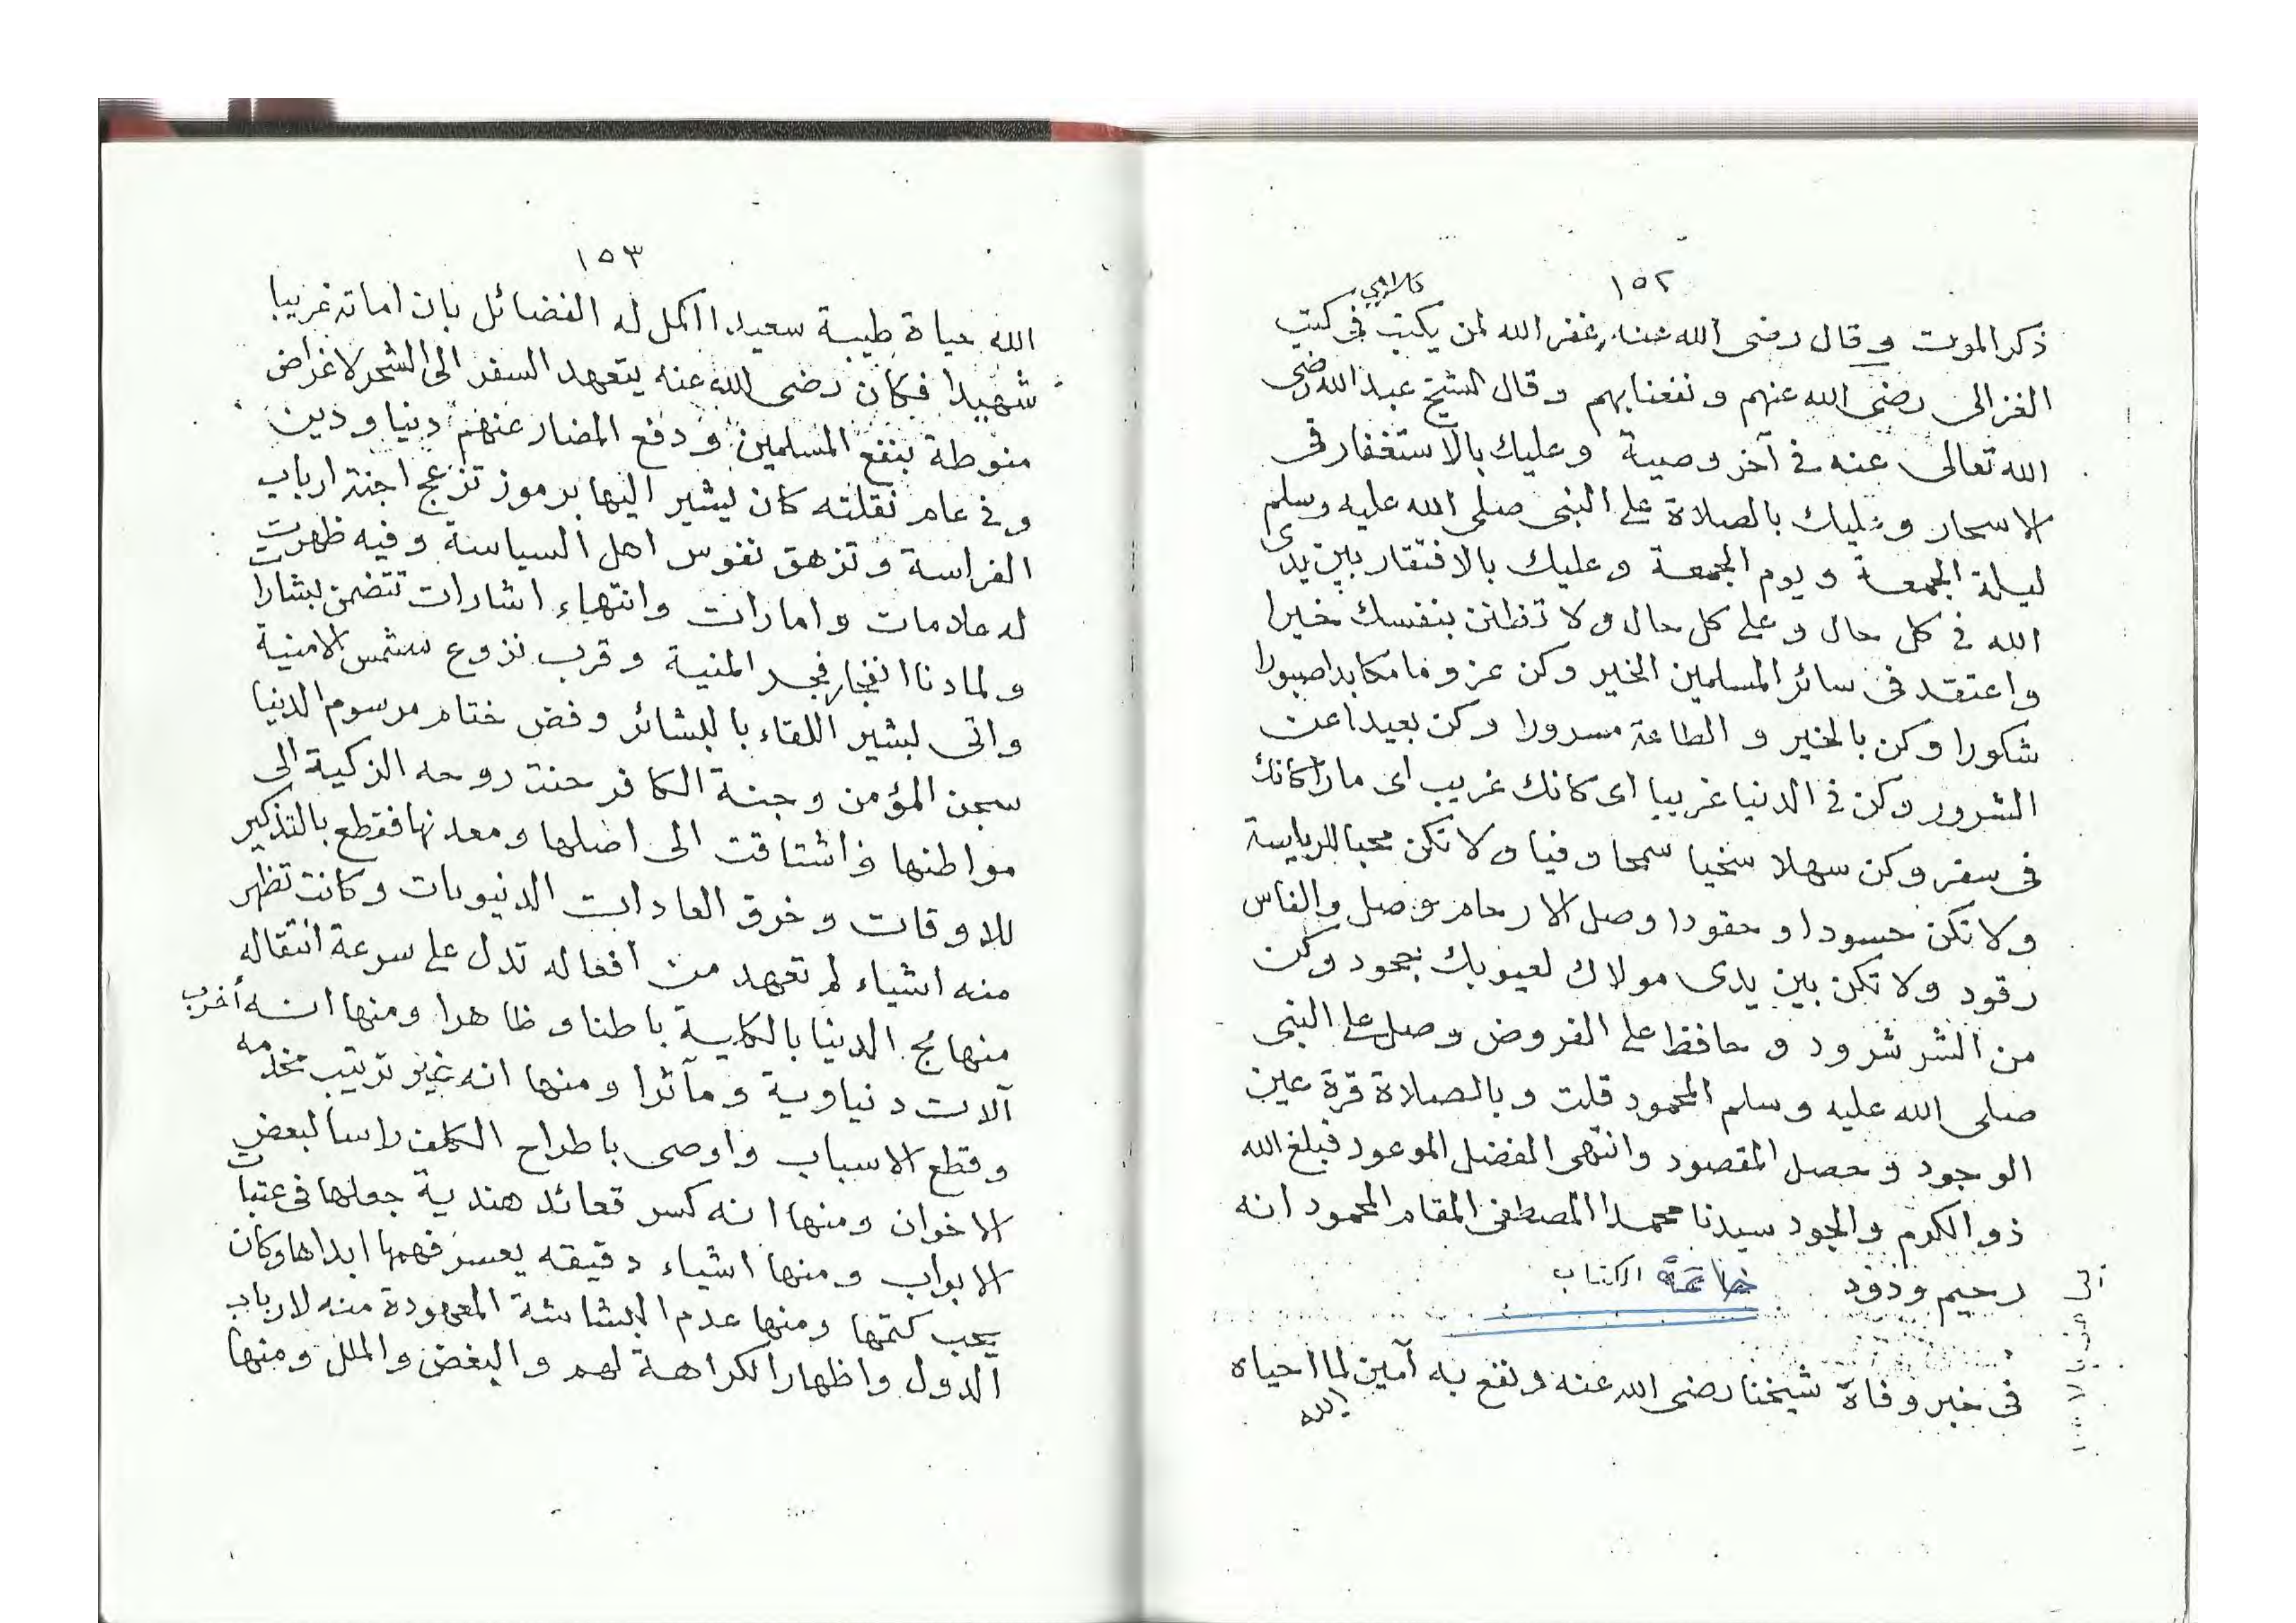 ١٥٢
ذكر الموت وقال رضى الله عنه غفر الله لمن يكتب فى كتب
الغزالى رضى الله عنهم ونفعنا بهم وقال الشيخ عبد الله رضى
الله تعالى عنه فى آخر وصية وعليك بالاستغفار فى
الاسحار وعليك بالصلاة على النبى صلى الله عليه وسلم
ليلة الجمعة ويوم الجمعة وعليك بالافتقار بين يدى
الله فى كل حال وعلى كل حال ولا تظنن بنفسك خيرا
واعتقد فى سائر المسلمين الخير وكن عزوما مكابدا صبورا
شكورا وكن بالخير و الطاعة مسرورا وكن بعيدا عن
الشرور وكن فى الدنيا غريبا اى كانك غريب اى مارا كانك
فى سفر وكن سهلا سخيا سمحا وفيا ولا تكن محبا للرياسة
ولا تكن حسودا و حقودا وصل الارحام وصل والناس
رقود ولا تكن بين يدى مولاك لعيوبك جحود وكن
من الشر شرود و حافظ على الفروض وصل على النبى
صلى الله عليه وسلم المحمود قلت وبالصلاة قرة عين
الوجود وحصل المقصود وانتهى الفضل الموعود فبلغ الله
ذو الكرم والجود سيدنا محمدا المصطفى المقام المحمود انه
رحيم ودود خاتمة الكتاب
فى خبر وفاة شيخنا رضى الله عنه ونفع به آمين لما احياه
الله
١٥٣
الله حياة طيبة سعيدا اكمل له الفضائل بان اماته غريبا
شهيدا فكان رضى الله عنه يتعهد السفر الى الشحر لاغراض
منوطة بنفع المسلمين ودفع المضار عنهم دنيا ودين
وفى عام نقلته كان يشير اليها برموز تزعج اجنة ارباب
الفراسة وتزهق نفوس اهل السياسة وفيه ظهرت
له علامات وامارات وانتهاء اشارات تتضمن بشارات
ولما دنا انفجار فجر المنية وقرب نزوع شمس الامنية
واتى بشير اللقاء بالبشائر وفض ختام مرسوم الدنيا
سجن المؤمن وجنة الكافر حنت روحه الزكية الى
مواطنها واشتاقت الى اصلها ومعدنها فقطع بالتذكير
للاوقات وخرق العادات الدنيويات وكانت تظهر
منه اشياء لم تعهد من افعاله تدل على سرعة انتقاله
منها مج الدنيا بالكلية باطنا وظاهرا ومنها انه أخرب
آلات دنياوية ومآثرا ومنها انه غير ترتيب مخدمه
وقطع الاسباب واوصى باطراح الكلف راسا لبعض
الاخوان ومنها انه كسر قعائد هندية جعلها فى عتبات
الابواب ومنها اشياء دقيقه يعسر فهمها ابداها وكان
يحب كتمها ومنها عدم البشاشة المعهودة منه لارباب
الدول واظهار الكراهة لهم والبغض والملل ومنها